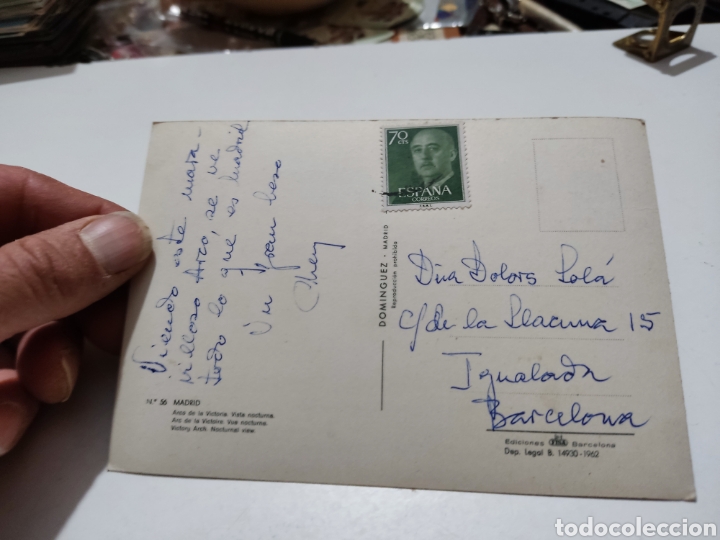 Viendo este mara-
villoso Arco se ve
todo lo que es Madrid
Un gran beso
70
CTS
ESPAÑA
CORREOS
DOMINGUEZ - MADRID
Reproducción prohibida
Dña Dolors Solá
C/ de la Llacuna 15
Igualada
Barcelona
N.º 56 MADRID
Arco de la Victoria. Vista nocturna.
Arc de la Victoire. Vue nocturne.
Victory Arch. Nocturnal view.
Ediciones Barcelona
Dep. Legal B. 14930-1962
todocoleccion